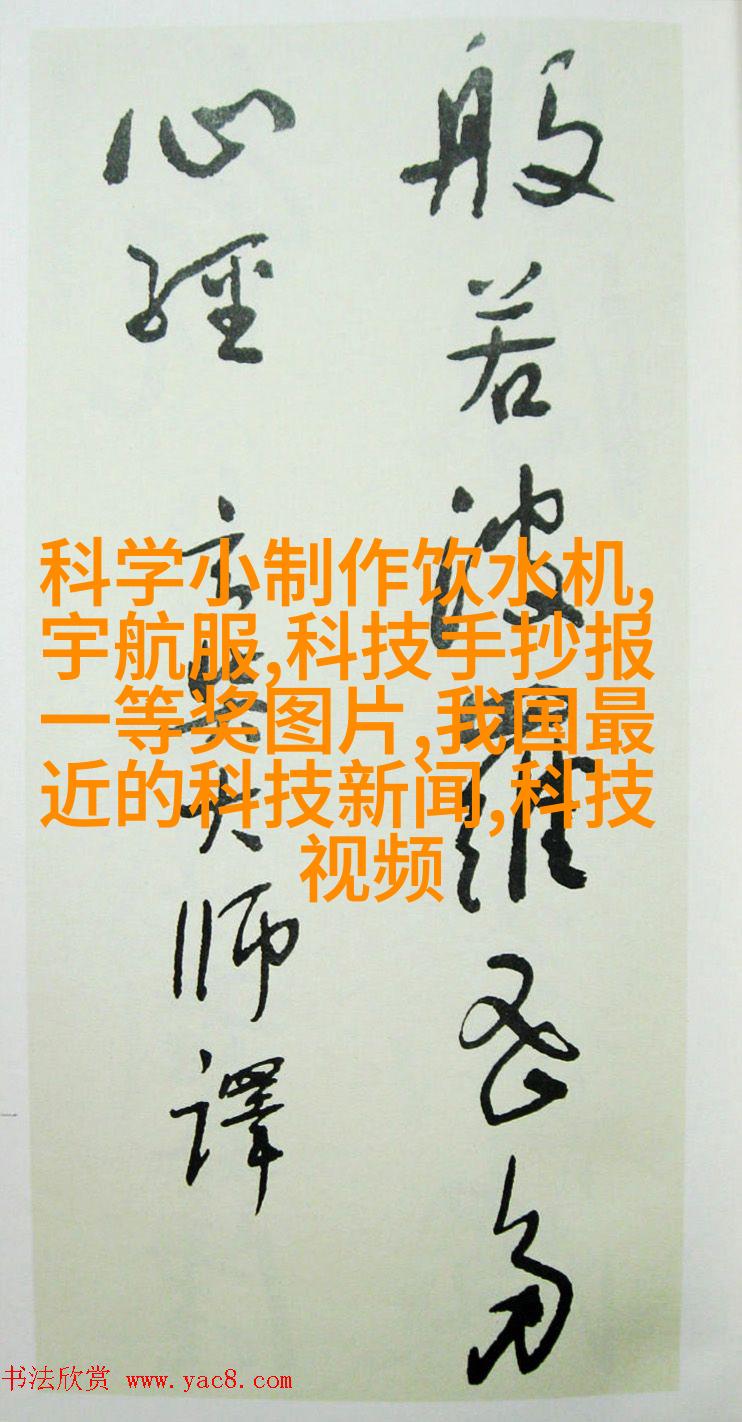 般若波羅蜜多
心經 玄奘大師譯
科学小制作饮水机,
宇航服,科技手抄报
一等奖图片,我国最
近的科技新闻,科技
视频
书法欣赏 www.yac8.com